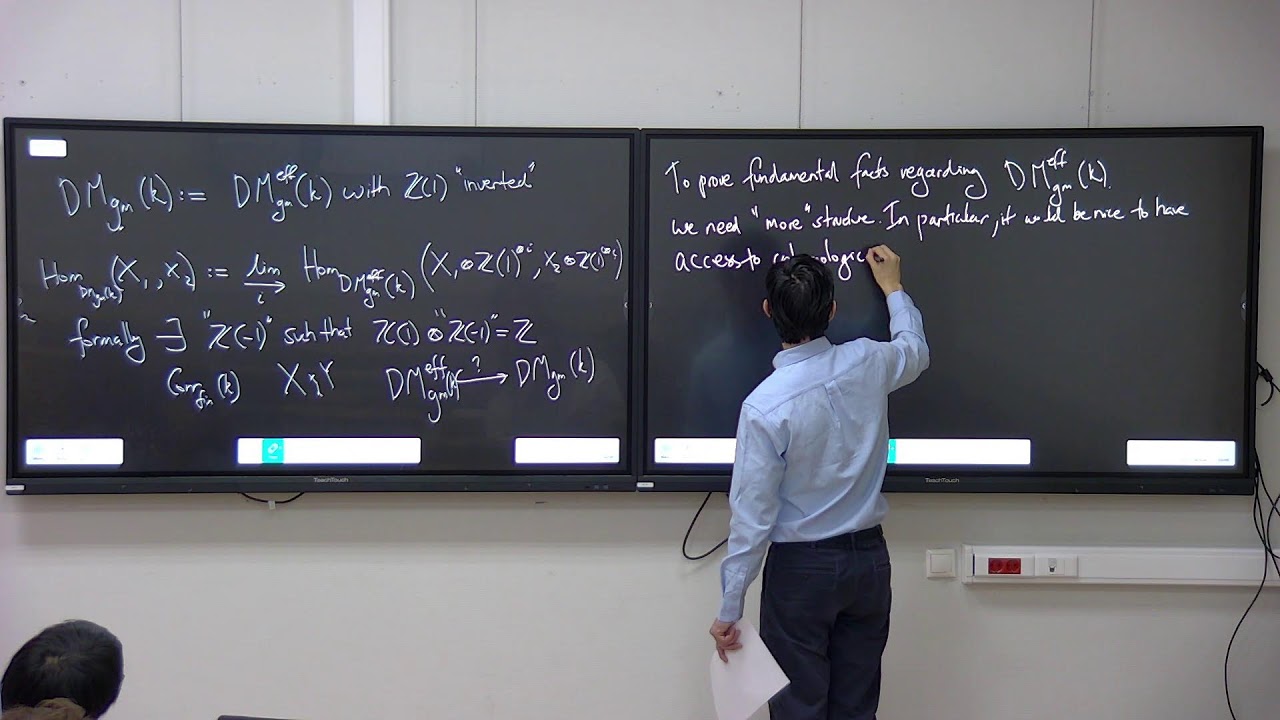 DM_gm(k) := DM^eff_gm(k) with Z(1) "inverted"
Hom_DM_gm(k)(X₁, X₂) := lim→_i Hom_DM^eff_gm(k)(X₁⊗Z(1)^⊗i, X₂⊗Z(1)^⊗i)
formally ∃ "Z(-1)" such that Z(1) ⊗ "Z(-1)" = Z
Corr_fin(k) X × Y DM^eff_gm(k) ?→ DM_gm(k)
TeachTouch
To prove fundamental facts regarding DM^eff_gm(k).
we need "more" structure. In particular, it would be nice to have
access to
TeachTouch